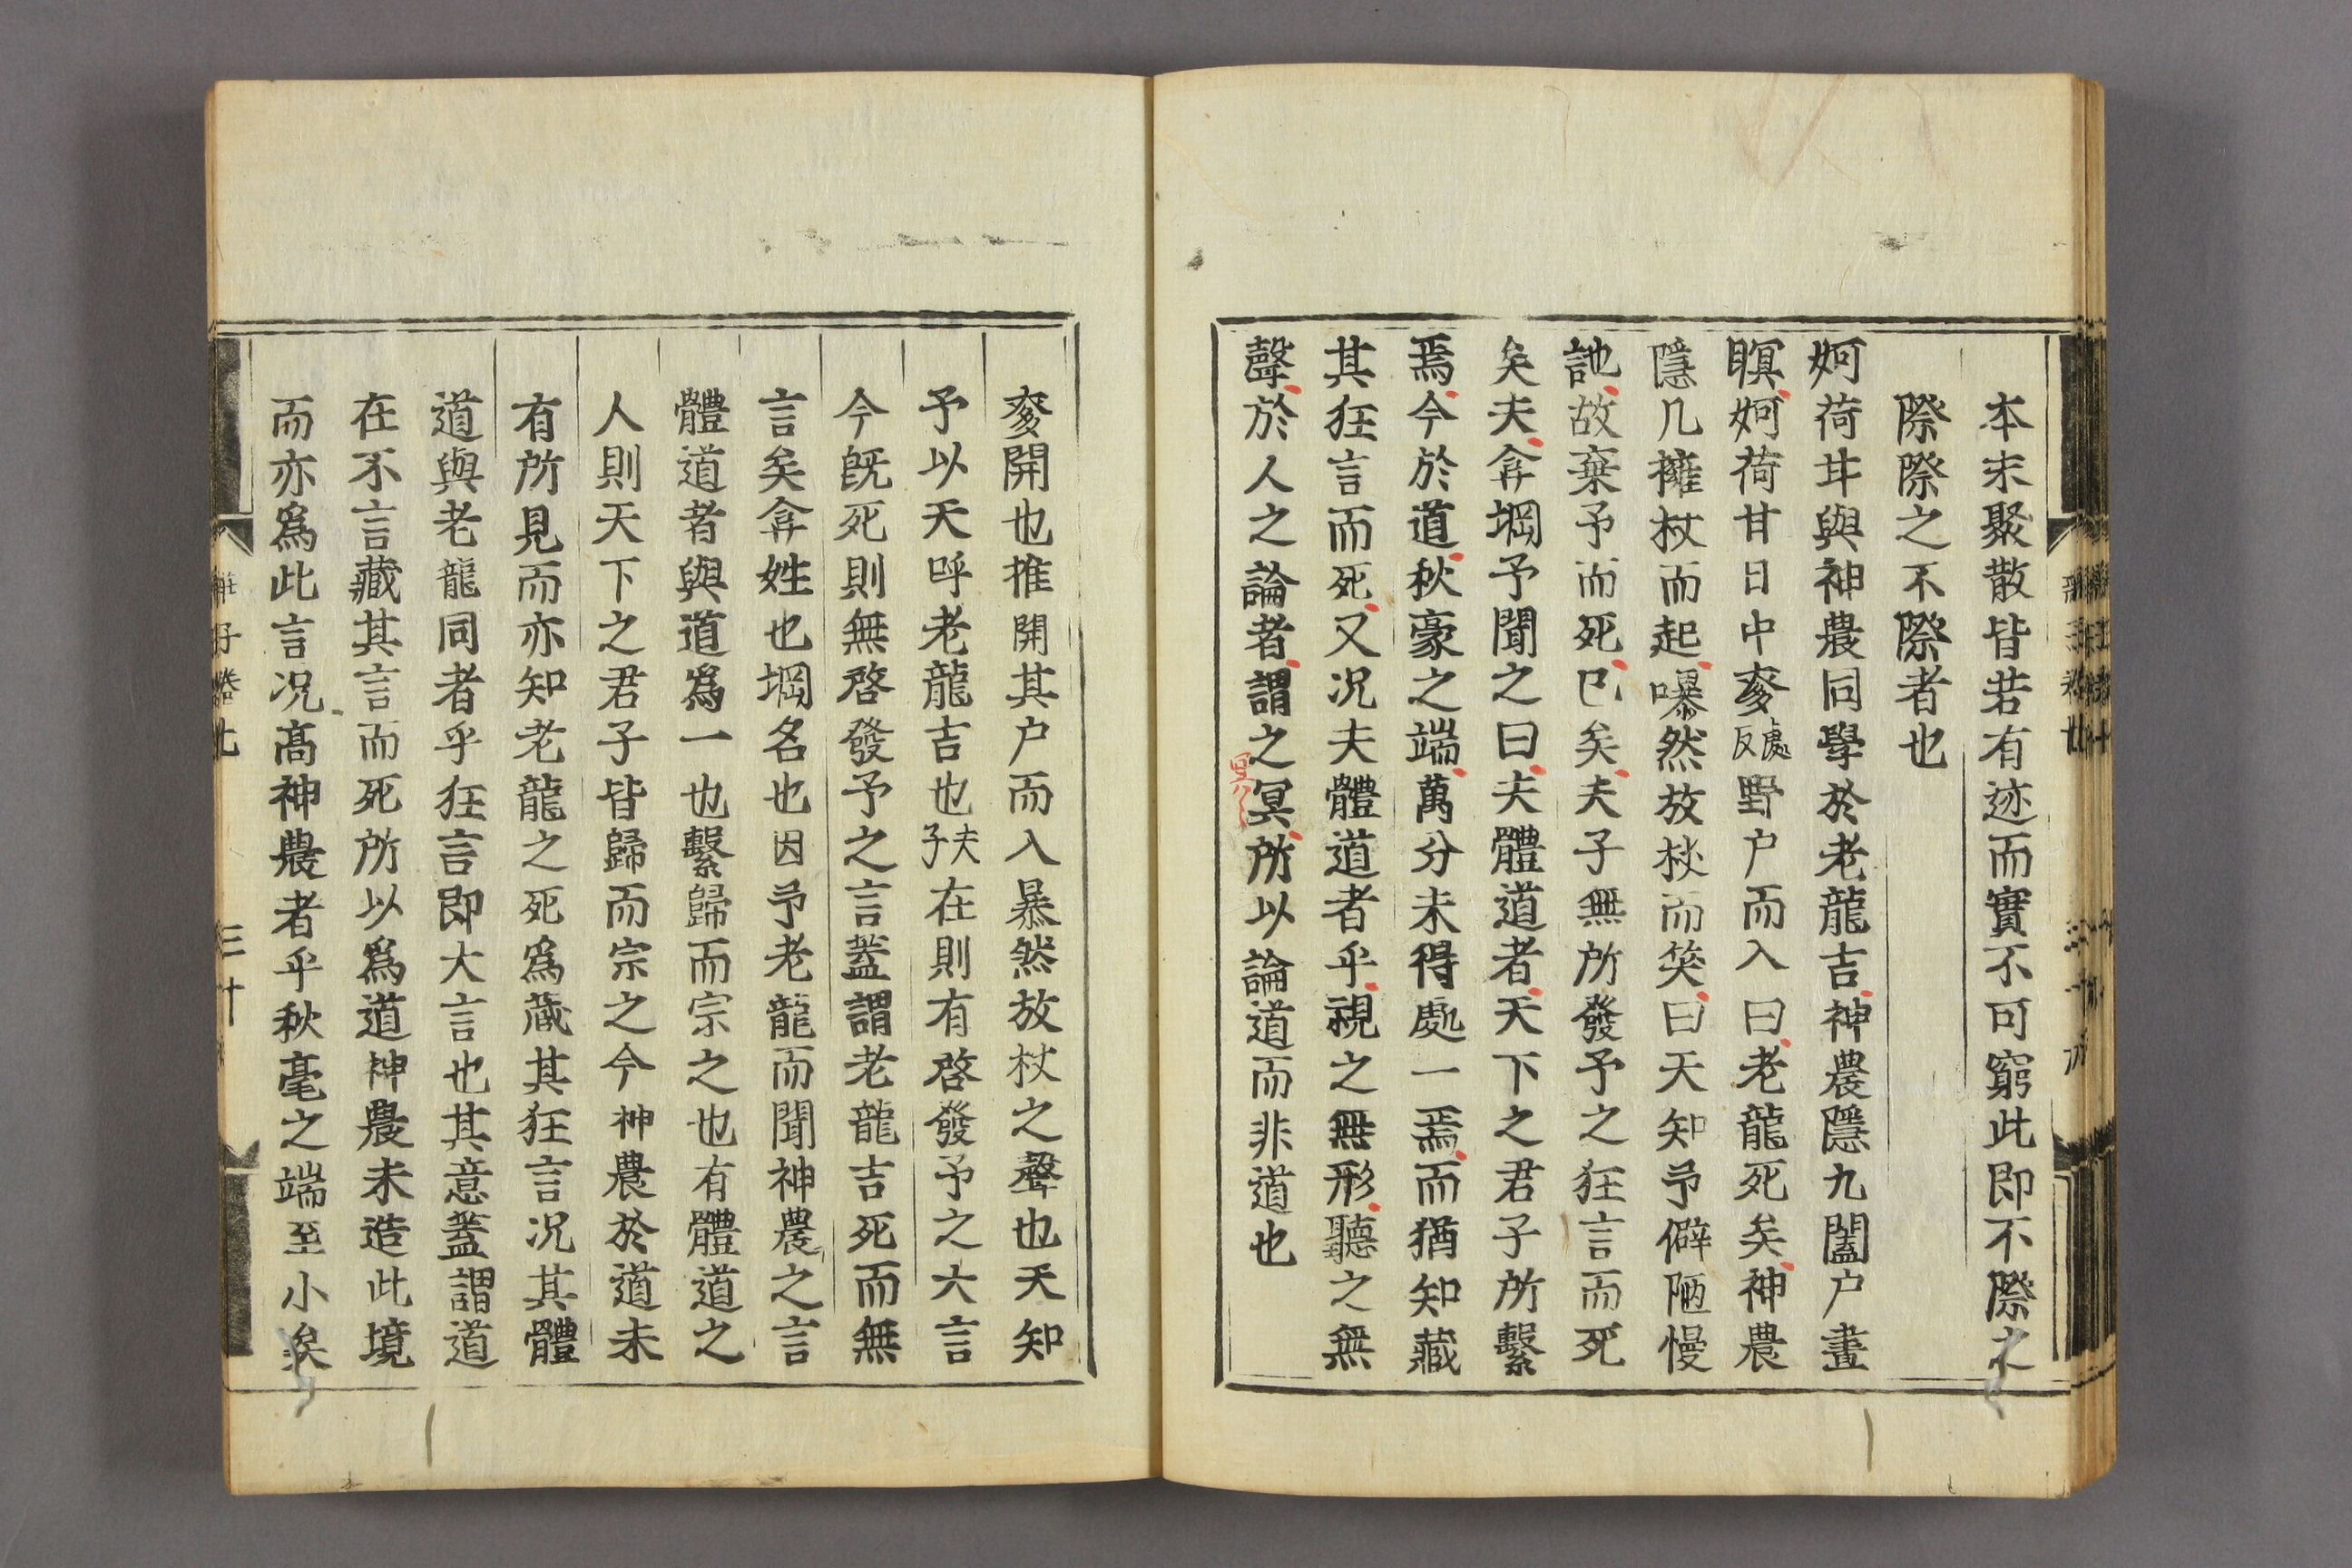 本末聚散皆若有迹而實不可窮此即不際之
際際之不際者也
妸荷甘與神農同學於老龍吉神農隱几闔户晝
瞑妸荷甘日中奓處野反户而入曰老龍死矣神農
隱几擁杖而起嚗然放杖而笑曰天知予僻陋慢
訑故棄予而死已矣夫子無所發予之狂言而死
矣夫弇堈予聞之曰夫體道者天下之君子所繫
焉今於道秋豪之端萬分未得處一焉而猶知藏
其狂言而死又况夫體道者乎視之無形聽之無
聲於人之論者謂之冥冥所以論道而非道也
奓開也推開其户而入暴然放杖之聲也天知
予以天呼老龍吉也夫子在則有啓發予之大言
今既死則無啓發予之言蓋謂老龍吉死而無
言矣弇姓也堈名也因弔老龍而聞神農之言
體道者與道爲一也繫歸而宗之也有體道之
人則天下之君子皆歸而宗之今神農於道未
有所見而亦知老龍之死爲藏其狂言况其體
道與老龍同者乎狂言即大言也其意蓋謂道
在不言藏其言而死所以爲道神農未造此境
而亦爲此言况高神農者乎秋毫之端至小矣
莊子卷七 三十